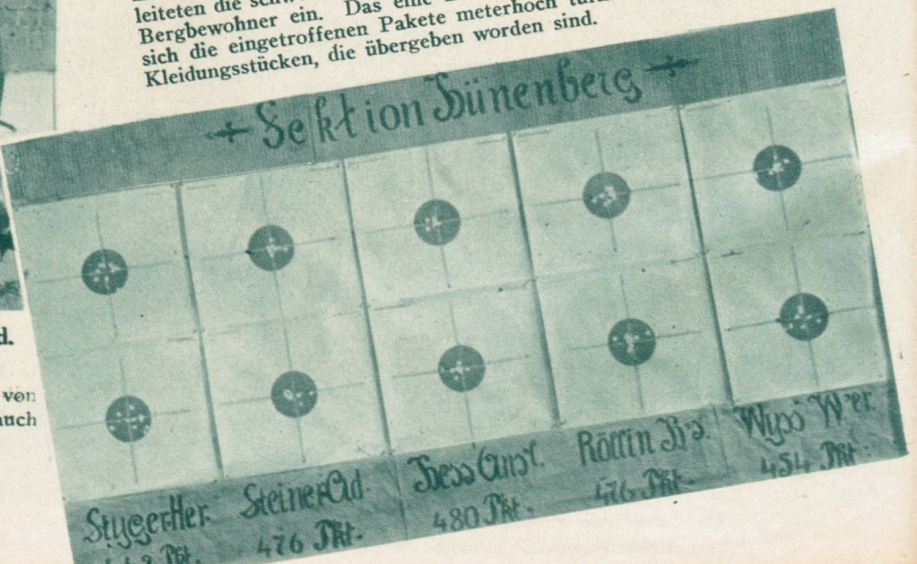 leiteten die
Bergbewohner ein. Das
sich die eingetroffenen Pakete meterhoch
Kleidungsstücken, die übergeben worden sind.
Sektion Hünenberg
d.
von
auch
Styger Her.
Steiner Ad.
476 Pkt.
Hess Anst.
480 Pkt.
Röllin Js.
476 Pkt.
Wyss Wer.
454 Pkt.
Pkt.